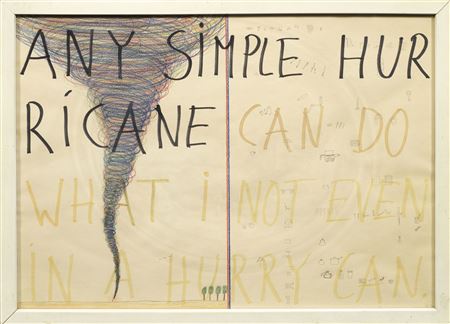 ANY SiMPLE HUR
RiCANE CAN DO
WHAT i NOT EVEN
iN A HURRY CAN